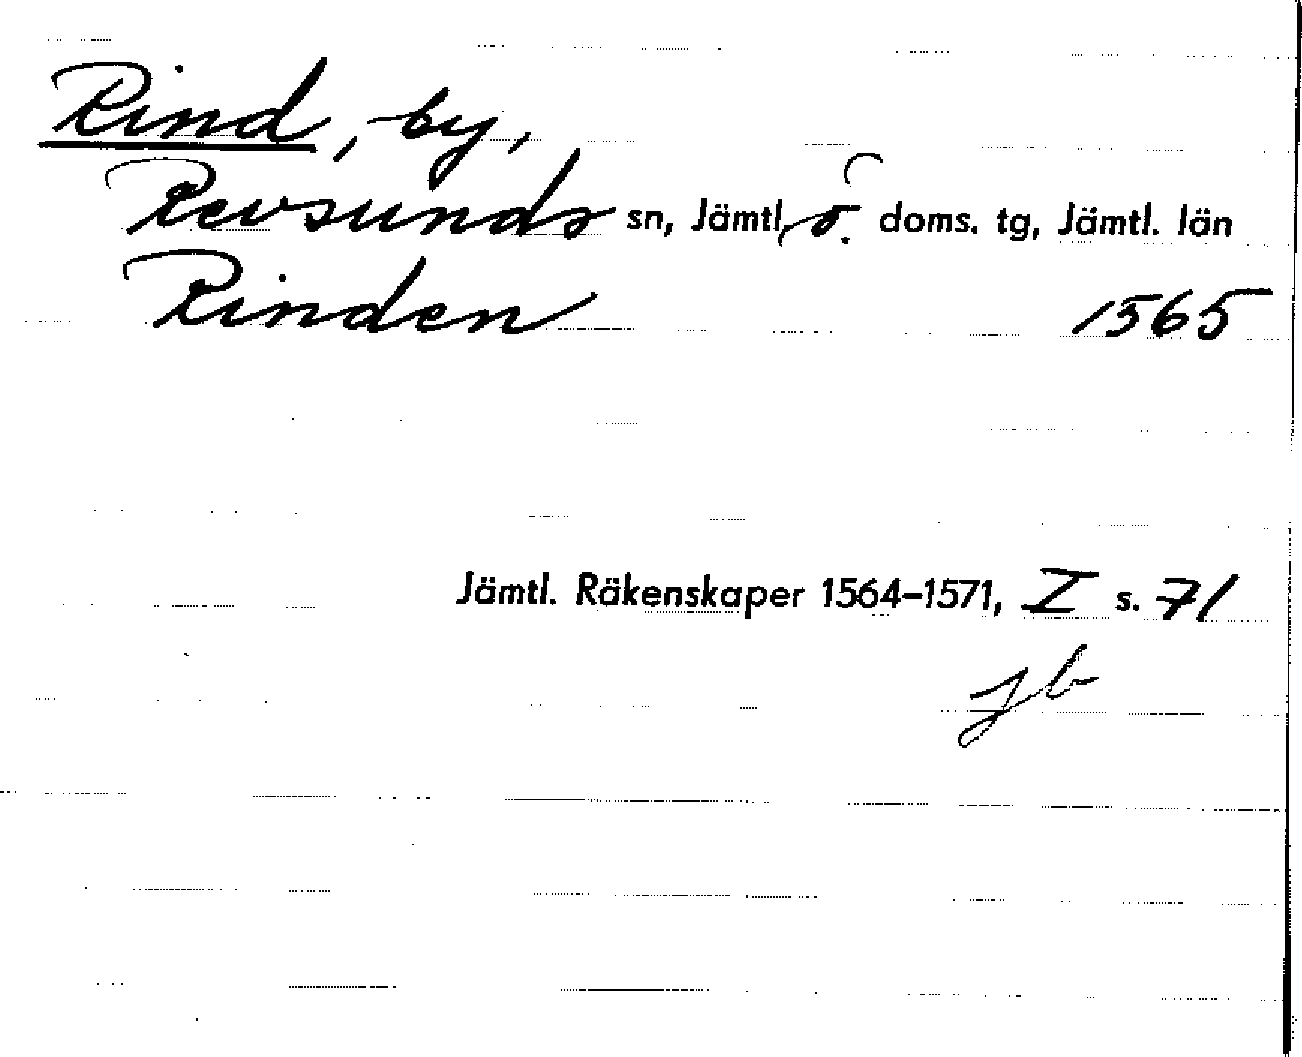 Rind, by,
Revsunds sn, Jämtl, ö. doms. tg, Jämtl. län
Rinden 1565
Jämtl. Räkenskaper 1564-1571, I s. 71
Jb